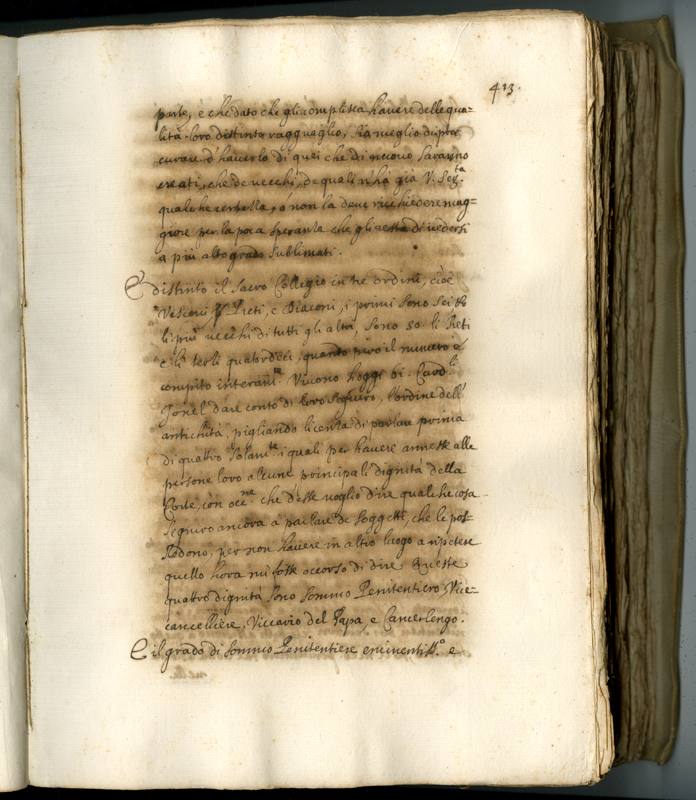 413.
parte, e che dato che gli complisca havere delle qua=
lità loro distinto ragguaglio, sia meglio di pro
curare d'haverlo di quei che di nuovo saranno
creati, che de vecchi, de quali n'hà già V. Ser.ta
qualche certezza, o non la deve richiedere mag=
giore per la poca speranza che gli resta di vedersi
a più alto grado sublimati.
È distinto il Sacro Collegio in tre ordini, cioè
Vesconi Preti, e Diaconi, i primi sono sei et
li più vecchi di tutti gli altri, sono 50 li Preti
e li terzi quatordeci, quando però il numero è
compito interam.te Vivono hoggi 61 Card.li
Io nel dare conto di loro seguirò, l'ordine dell'
antichità, pigliando licenza di parlare prima
di quattro solam.te i quali per havere annesse alle
persone loro alcune principali dignità della
Corte, con occ.ne che d'esse voglio dire qualche cosa
seguirò ancora a parlare de soggetti, che le pos=
siedono, per non havere in altro luogo a ripetere
quello hora mi fosse occorso di dire. Queste
quattro dignità sono Sommo Penitentiero Vice=
cancelliere, Viccario del Papa, e Camerlengo.
È il grado di Sommo Penitentiere eminentiss.o e
nelle